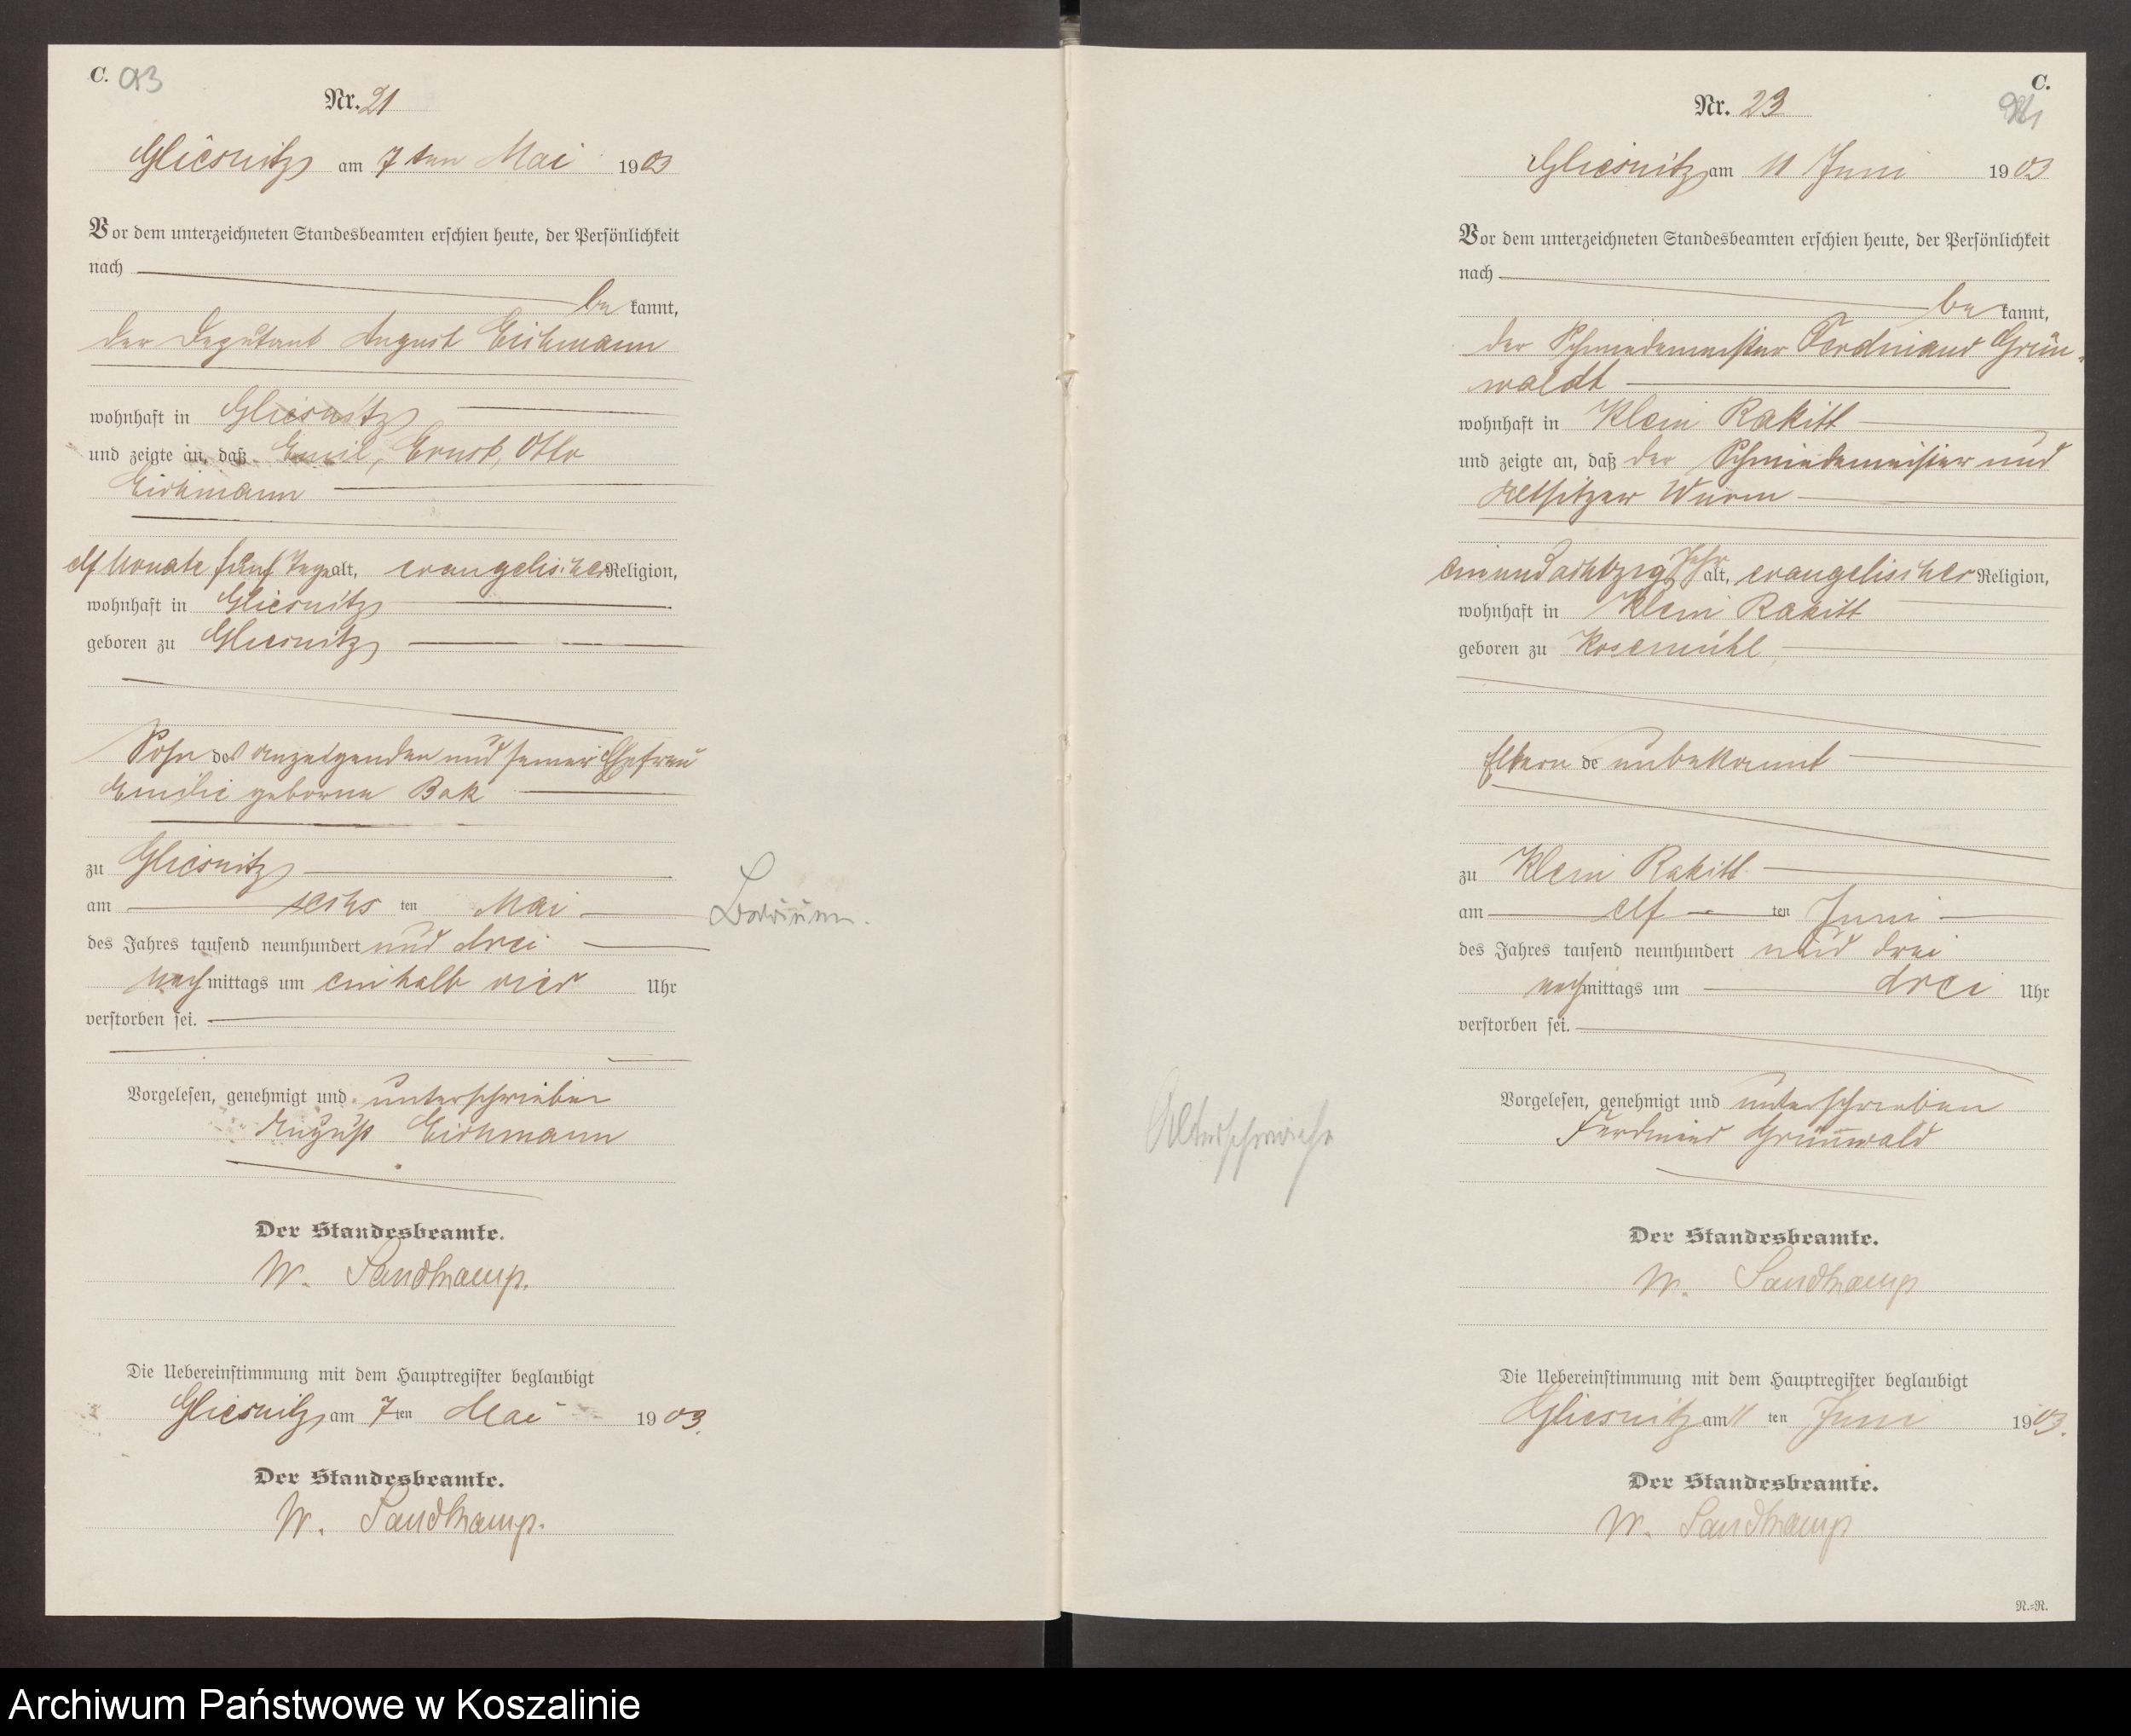 C. 93
Nr. 21
Gliesnitz am 7ten Mai 1903
Vor dem unterzeichneten Standesbeamten erschien heute, der Persönlichkeit
nach
be kannt,
der Deputant August Eichmann
wohnhaft in Gliesnitz
und zeigte an, daß Emil, Ernst, Otto
Eichmann
elf Monate fünf Tage alt, evangelischer Religion,
wohnhaft in Gliesnitz
geboren zu Gliesnitz
Sohn des Anzeigenden und seiner Ehefrau
Emilie geborene Bak
zu Gliesnitz
am sechs ten Mai
des Jahres tausend neunhundert und drei
nach mittags um ein halb vier Uhr
verstorben sei.
Vorgelesen, genehmigt und unterschrieben
August Eichmann
Der Standesbeamte.
W. Sandkamp.
Die Uebereinstimmung mit dem Hauptregister beglaubigt
Gliesnitz am 7ten Mai 1903.
Der Standesbeamte.
W. Sandkamp.
C.
Nr. 23
Gliesnitz am 11 Juni 1903
Vor dem unterzeichneten Standesbeamten erschien heute, der Persönlichkeit
nach
be kannt,
der Schmiedemeister Ferdinand Grün-
waldt
wohnhaft in Klein Rakitt
und zeigte an, daß der Schmiedemeister und
Altsitzer Wurm
einundachtzig Jahr alt, evangelischer Religion,
wohnhaft in Klein Rakitt
geboren zu Rosemühl
Eltern de unbekannt
zu Klein Rakitt
am elf ten Juni
des Jahres tausend neunhundert und drei
nach mittags um drei Uhr
verstorben sei.
Altersschwäche
Vorgelesen, genehmigt und unterschrieben
Ferdinand Grünwald
Der Standesbeamte.
W. Sandkamp
Die Uebereinstimmung mit dem Hauptregister beglaubigt
Gliesnitz am 11 ten Juni 1903.
Der Standesbeamte.
W. Sandkamp
N.=N.
Archiwum Państwowe w Koszalinie